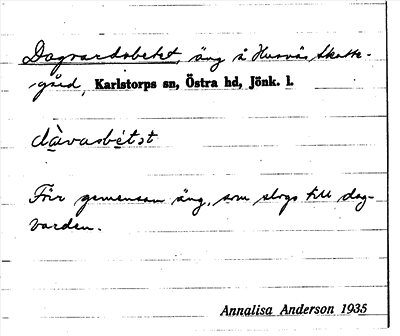 Dagvardsbetet, äng å Husnäs Skatte-
gård, Karlstorps sn, Östra hd, Jönk. l.
dàvasbétət
Förr gemensam äng, som slogs till dag-
varden.
Annalisa Anderson 1935